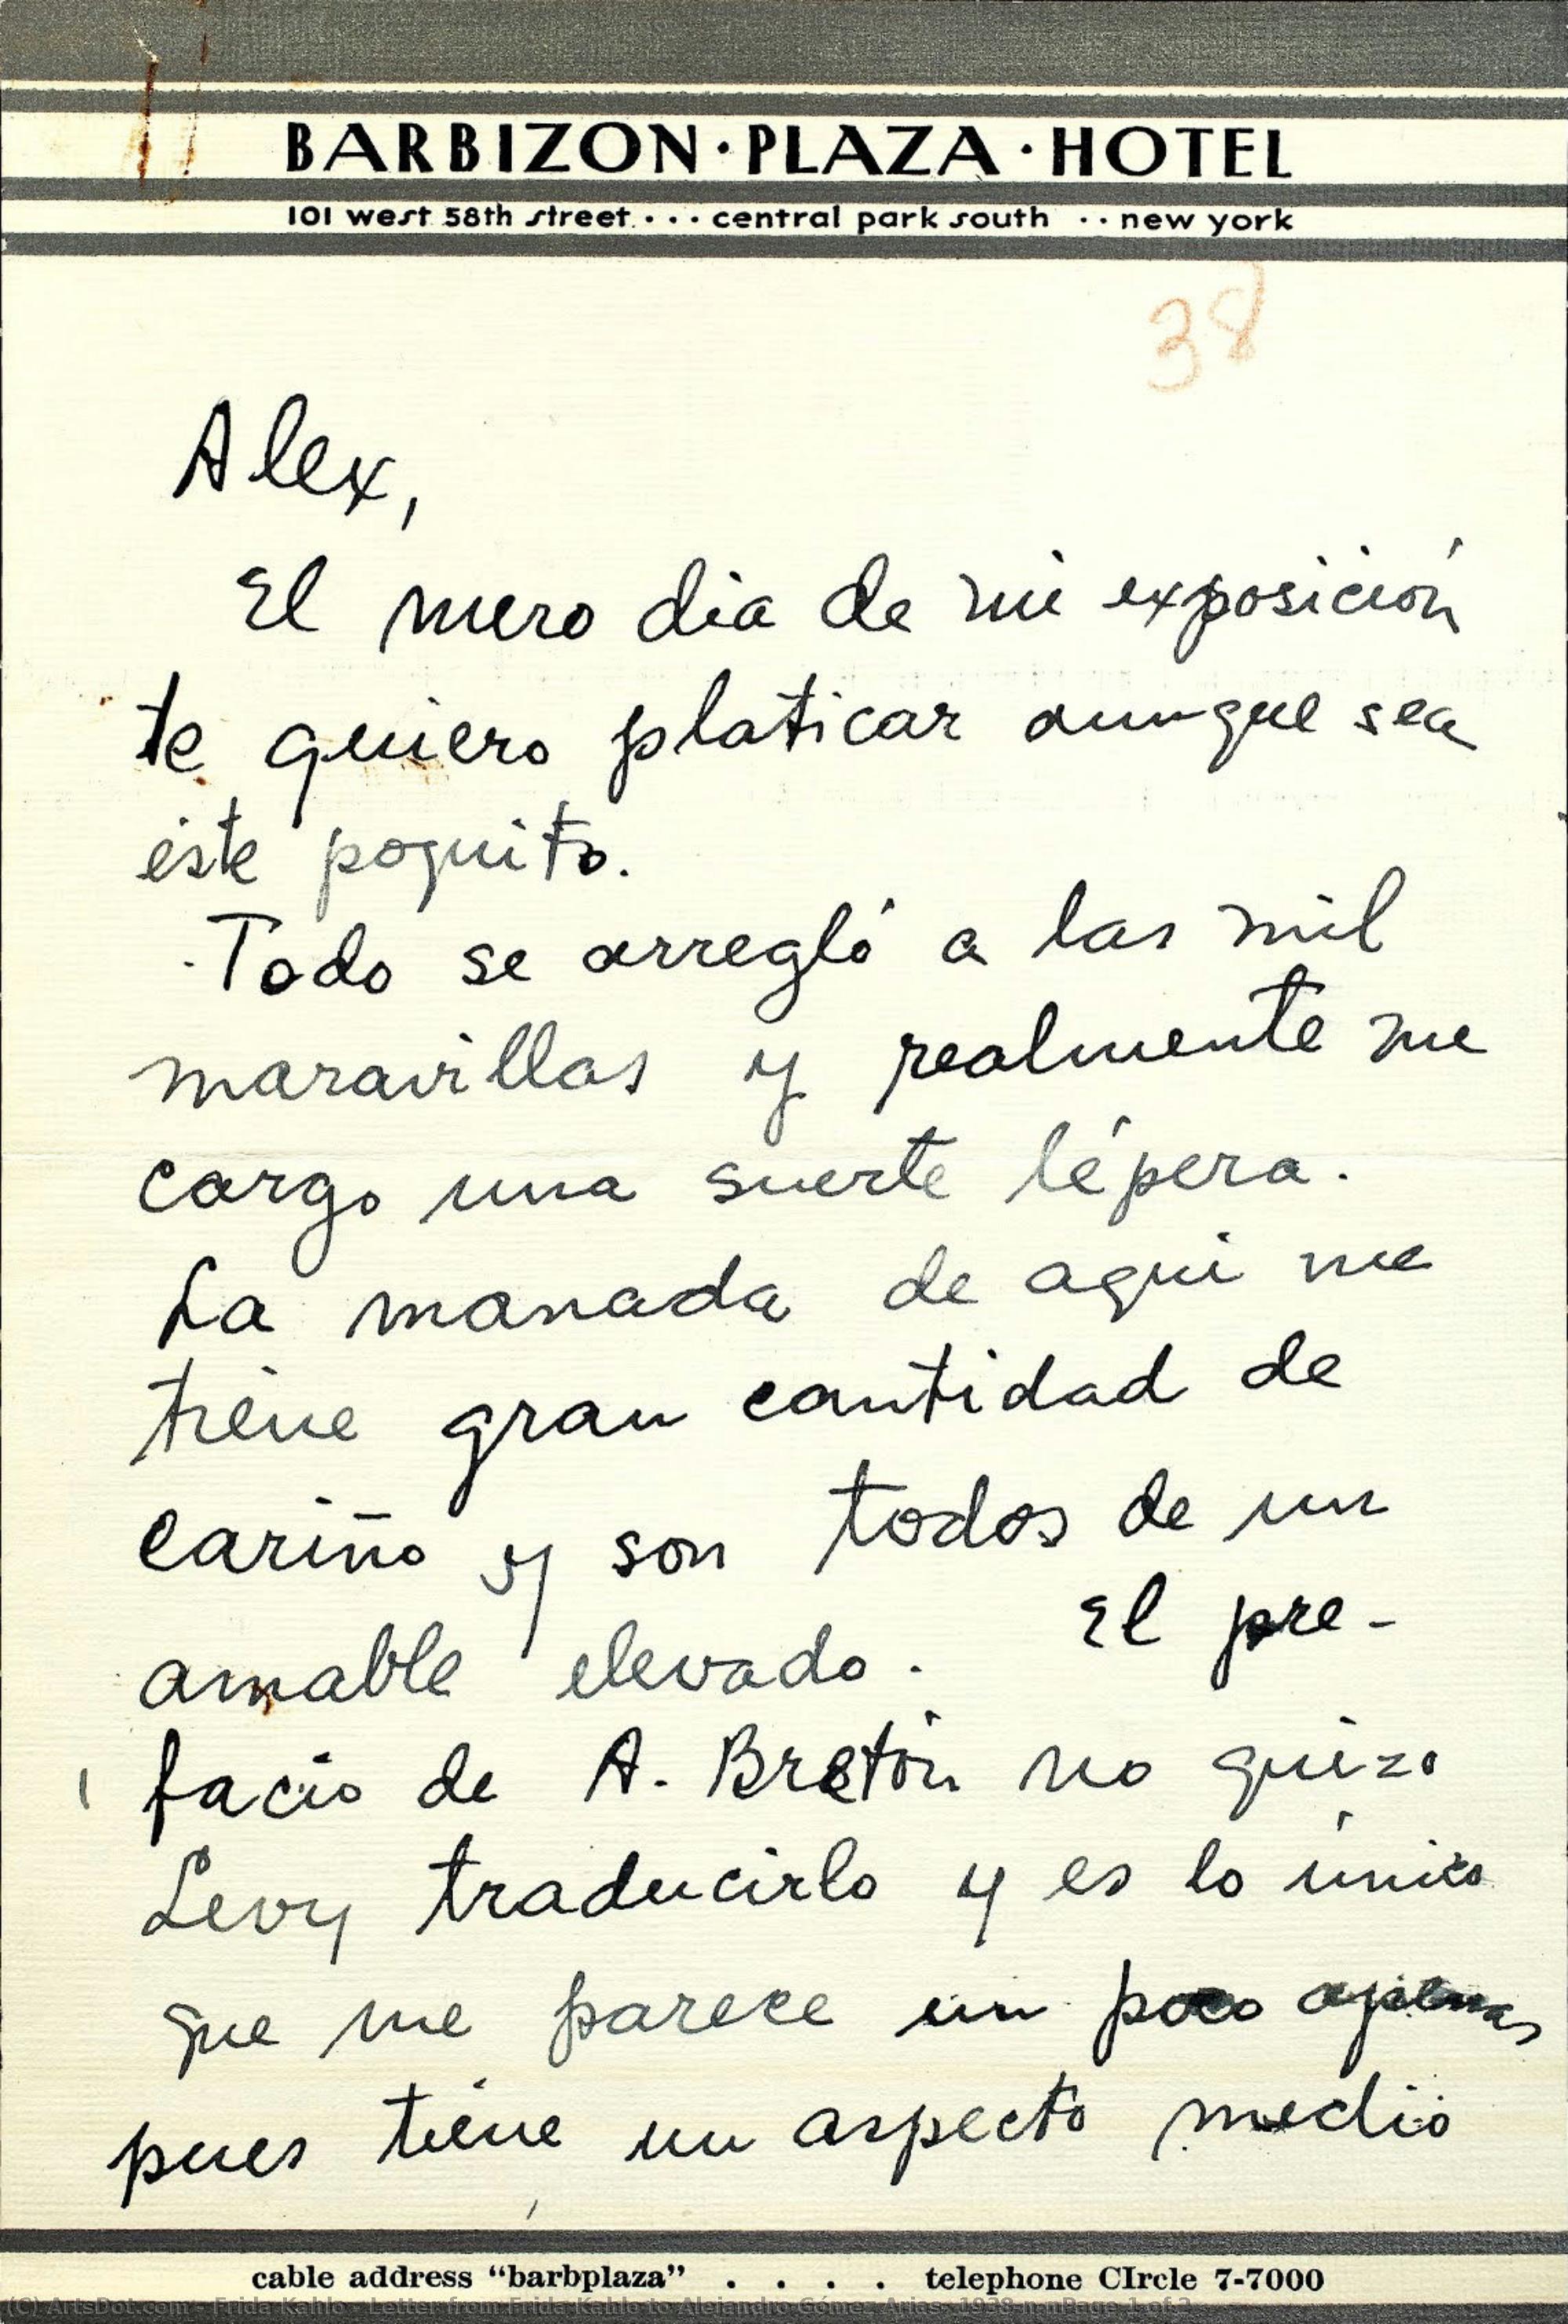 BARBIZON·PLAZA·HOTEL
101 west 58th street . . . central park south . . new york
38
Alex,
El mero dia de mi exposición
te quiero platicar aunque sea
éste poquito.
Todo se arregló a las mil
maravillas y realmente me
cargo una suerte lépera.
La manada de aqui me
tiene gran cantidad de
cariño y son todos de un
amable elevado. El pre-
facio de A. Bretón no quizo
Levy traducirlo y es lo único
que me parece un poco apenas
pues tiene un aspecto medio
cable address "barbplaza" . . . . telephone CIrcle 7-7000
(C) ArtsDot.com - Frida Kahlo - Letter from Frida Kahlo to Alejandro Gómez Arias -1938-n-nPage 1 of 3